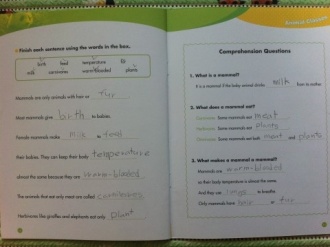 Finish each sentence using the words in the box.
birth feed temperature fur
milk carnivores warm-blooded plants
Mammals are only animals with hair or fur
Most mammals give birth to feed
Female mammals make milk to feed
their babies. They can keep their body temperature
almost the same because they are warm-blooded
The animals that eat only meat are called carnivores
Herbivores like giraffes and elephants eat only plant
Comprehension Questions
1. What is a mammal?
It is a mammal if the baby animal drinks milk from its mother.
2. What does a mammal eat?
Some mammals eat meat
Some mammals eat plants
Some mammals eat both meat and plants
3. What makes a mammal a mammal?
Mammals are warm-blooded
so their body temperature is almost the same.
And they use lungs to breathe.
Only mammals have hair or fur